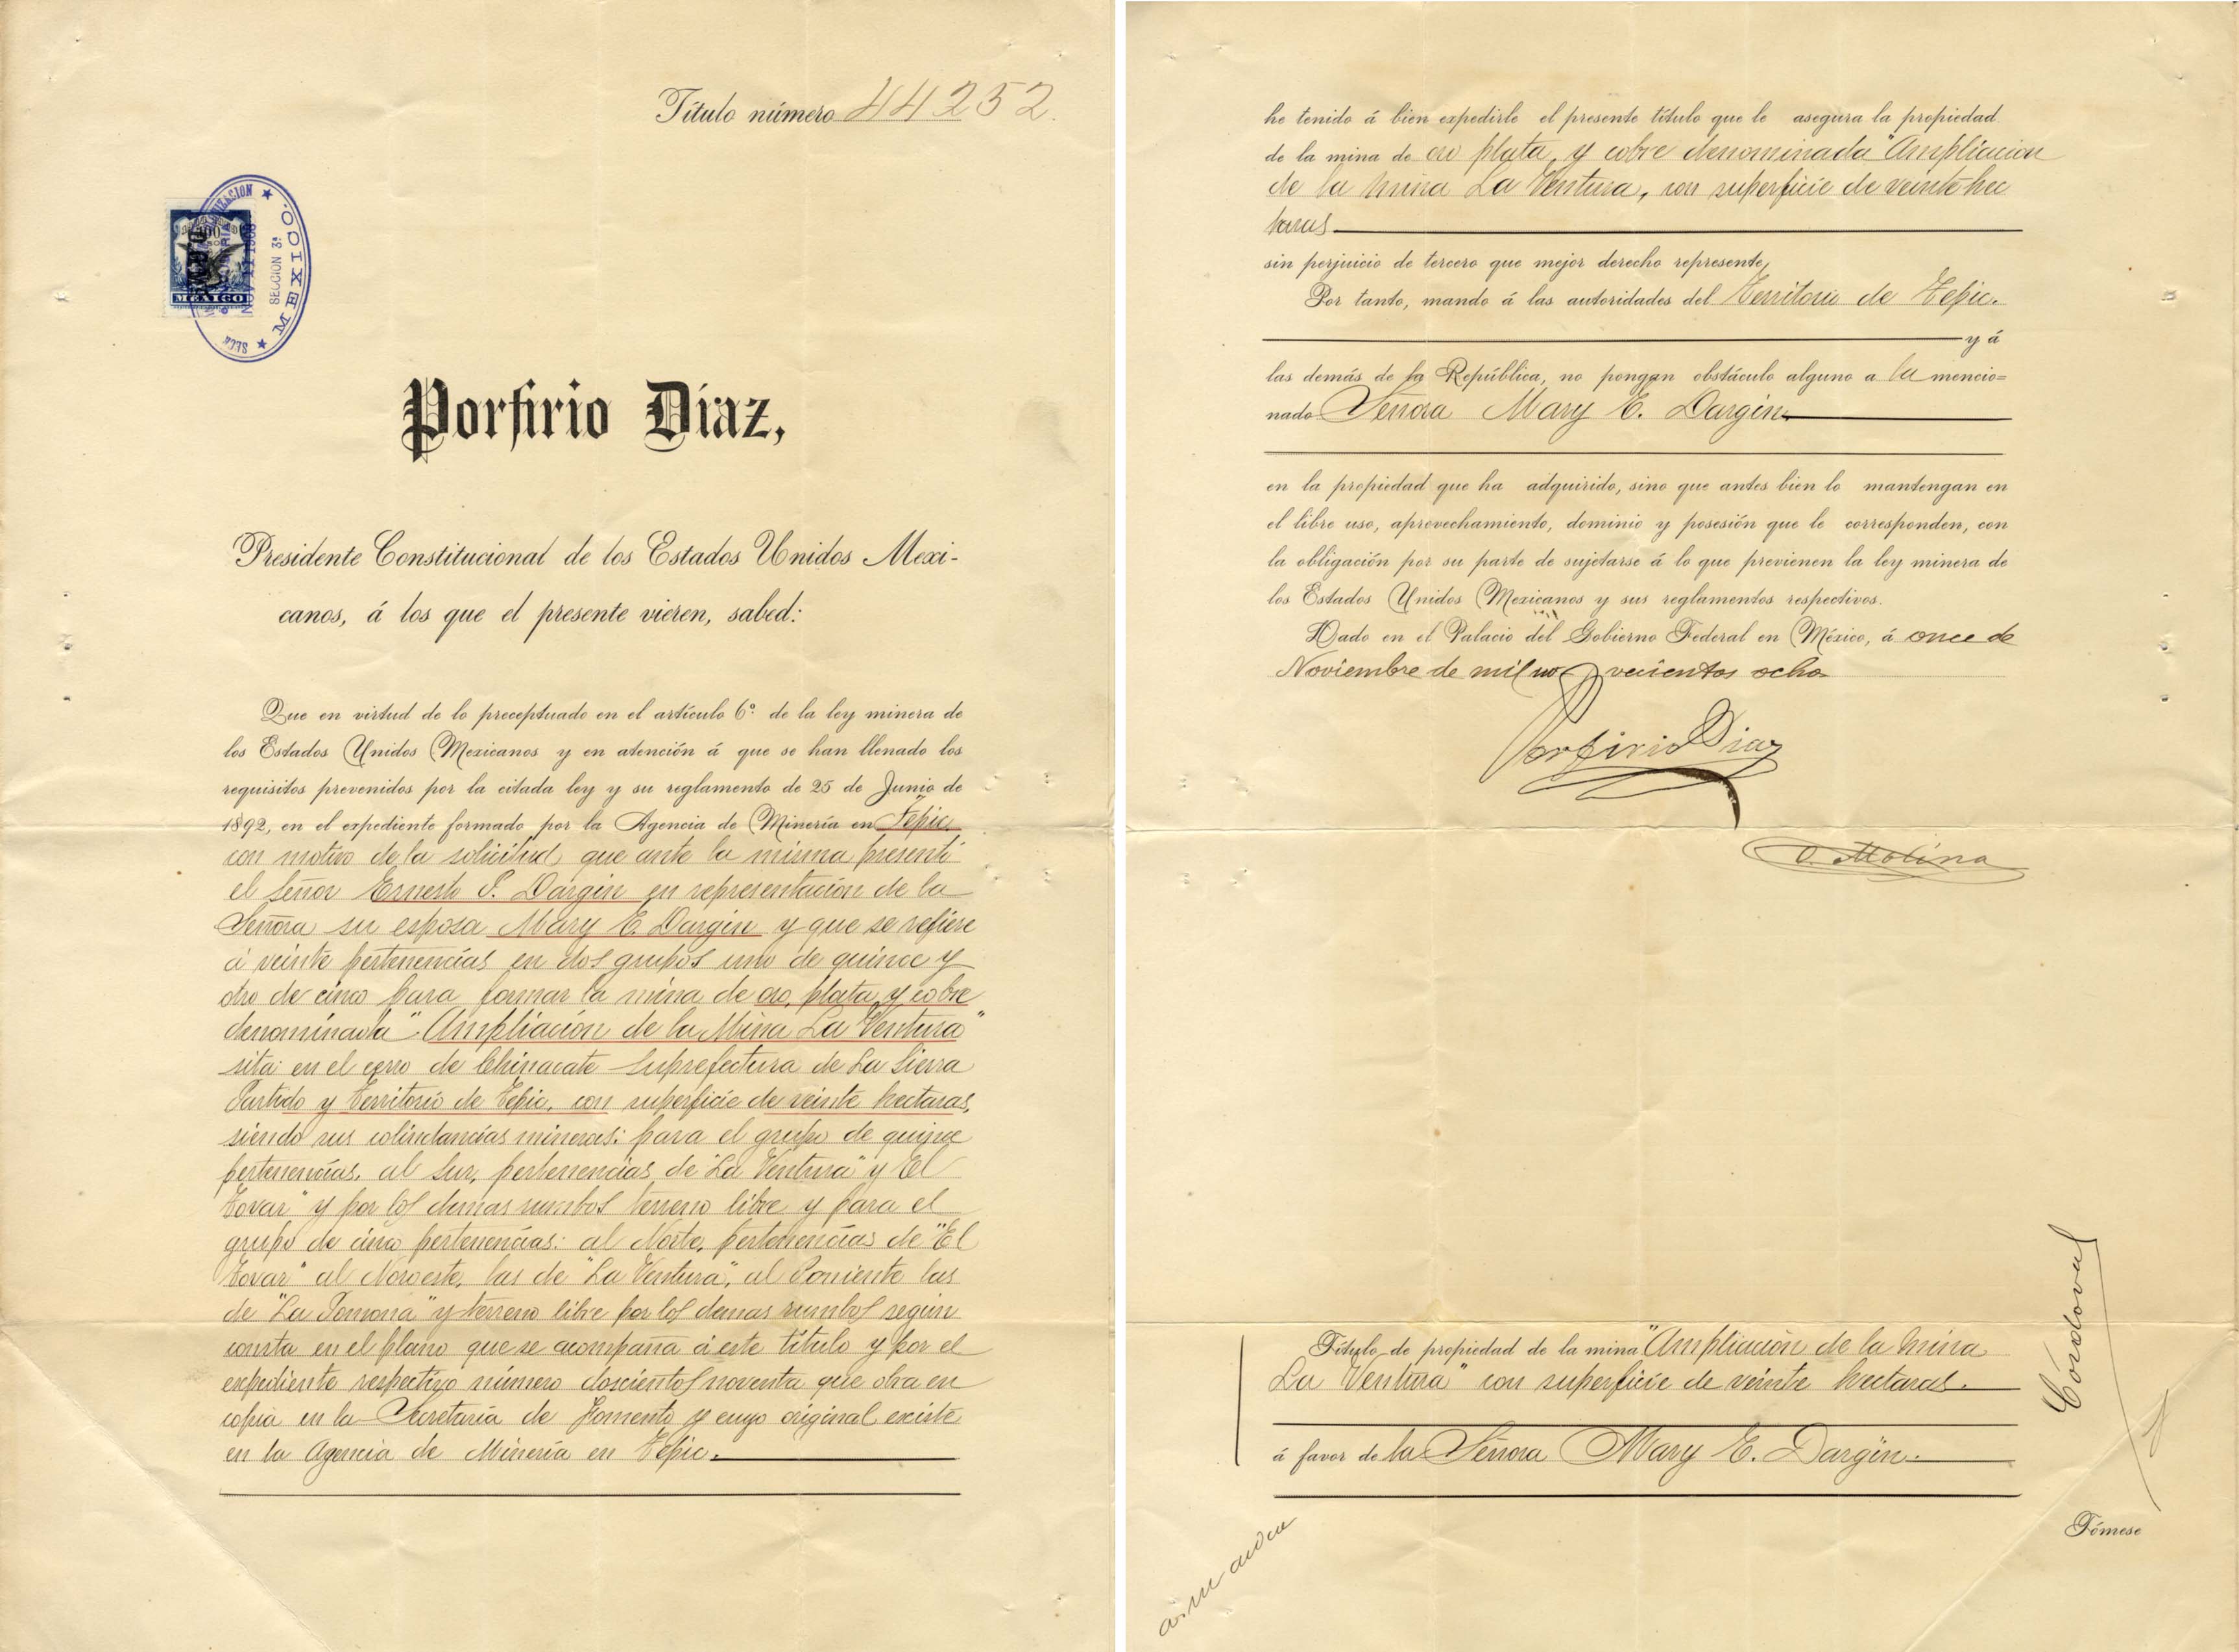 Título número 44252.
MEXICO
SECCION 3ª
MEXICO.
Porfirio Díaz,
Presidente Constitucional de los Estados Unidos Mexi-
canos, á los que el presente vieren, sabed:
Que en virtud de lo preceptuado en el artículo 6º. de la ley minera de
los Estados Unidos Mexicanos y en atención á que se han llenado los
requisitos prevenidos por la citada ley y su reglamento de 25 de Junio de
1892, en el expediente formado por la Agencia de Minería en Tepic,
con motivo de la solicitud que ante la misma presentó
el Señor Ernesto S. Dargin en representación de la
Señora su esposa Mary E. Dargin y que se refiere
á veinte pertenencias en dos grupos uno de quince y
otro de cinco para formar la mina de oro, plata y cobre
denominada "Ampliación de la Mina La Ventura"
sita en el cerro de Chinacate Subprefectura de La Sierra
Partido y Territorio de Tepic, con superficie de veinte hectaras,
siendo sus colindancias mineras: para el grupo de quince
pertenencias, al Sur, pertenencias de "La Ventura" y "El
Tovar" y por los demas rumbos terreno libre y para el
grupo de cinco pertenencias: al Norte, pertenencias de "El
Tovar" al Noroeste, las de "La Ventura", al Poniente las
de "La Pomona" y terreno libre por los demas rumbos segun
consta en el plano que se acompaña á este título y por el
expediente respectivo número doscientos noventa que obra en
copia en la Secretaría de Fomento y cuyo original existe
en la Agencia de Minería en Tepic.
he tenido á bien expedirle el presente título que le asegura la propiedad
de la mina de oro plata, y cobre denominada "Ampliacion
de la mina La Ventura, con superficie de veinte hec
taras
sin perjuicio de tercero que mejor derecho represente,
Por tanto, mando á las autoridades del Territorio de Tepic.
y á
las demás de la República, no pongan obstáculo alguno a la mencio=
nado Señora Mary E. Dargin.
en la propiedad que ha adquirido, sino que antes bien lo mantengan en
el libre uso, aprovechamiento, dominio y posesión que le corresponden, con
la obligación por su parte de sujetarse á lo que previenen la ley minera de
los Estados Unidos Mexicanos y sus reglamentos respectivos.
Dado en el Palacio del Gobierno Federal en México, á once de
Noviembre de mil novecientos ocho
Porfirio Diaz
O. Molina
Título de propiedad de la mina "Ampliación de la mina
La Ventura" con superficie de veinte hectaras.
á favor de la Señora Mary E. Dargin.
Córdova
Tómese